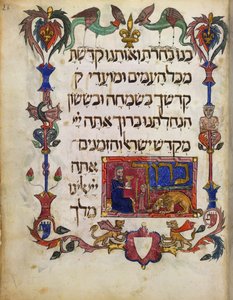 בנו בחרת ואותנו קדשת
מכל העמים ומועדי ק
קדשך בשמחה ובששון
הנחלתנו ברוך אתה יי
מקדש ישראל והזמנים
ברוך
אתה
יי אלהינו
מלך